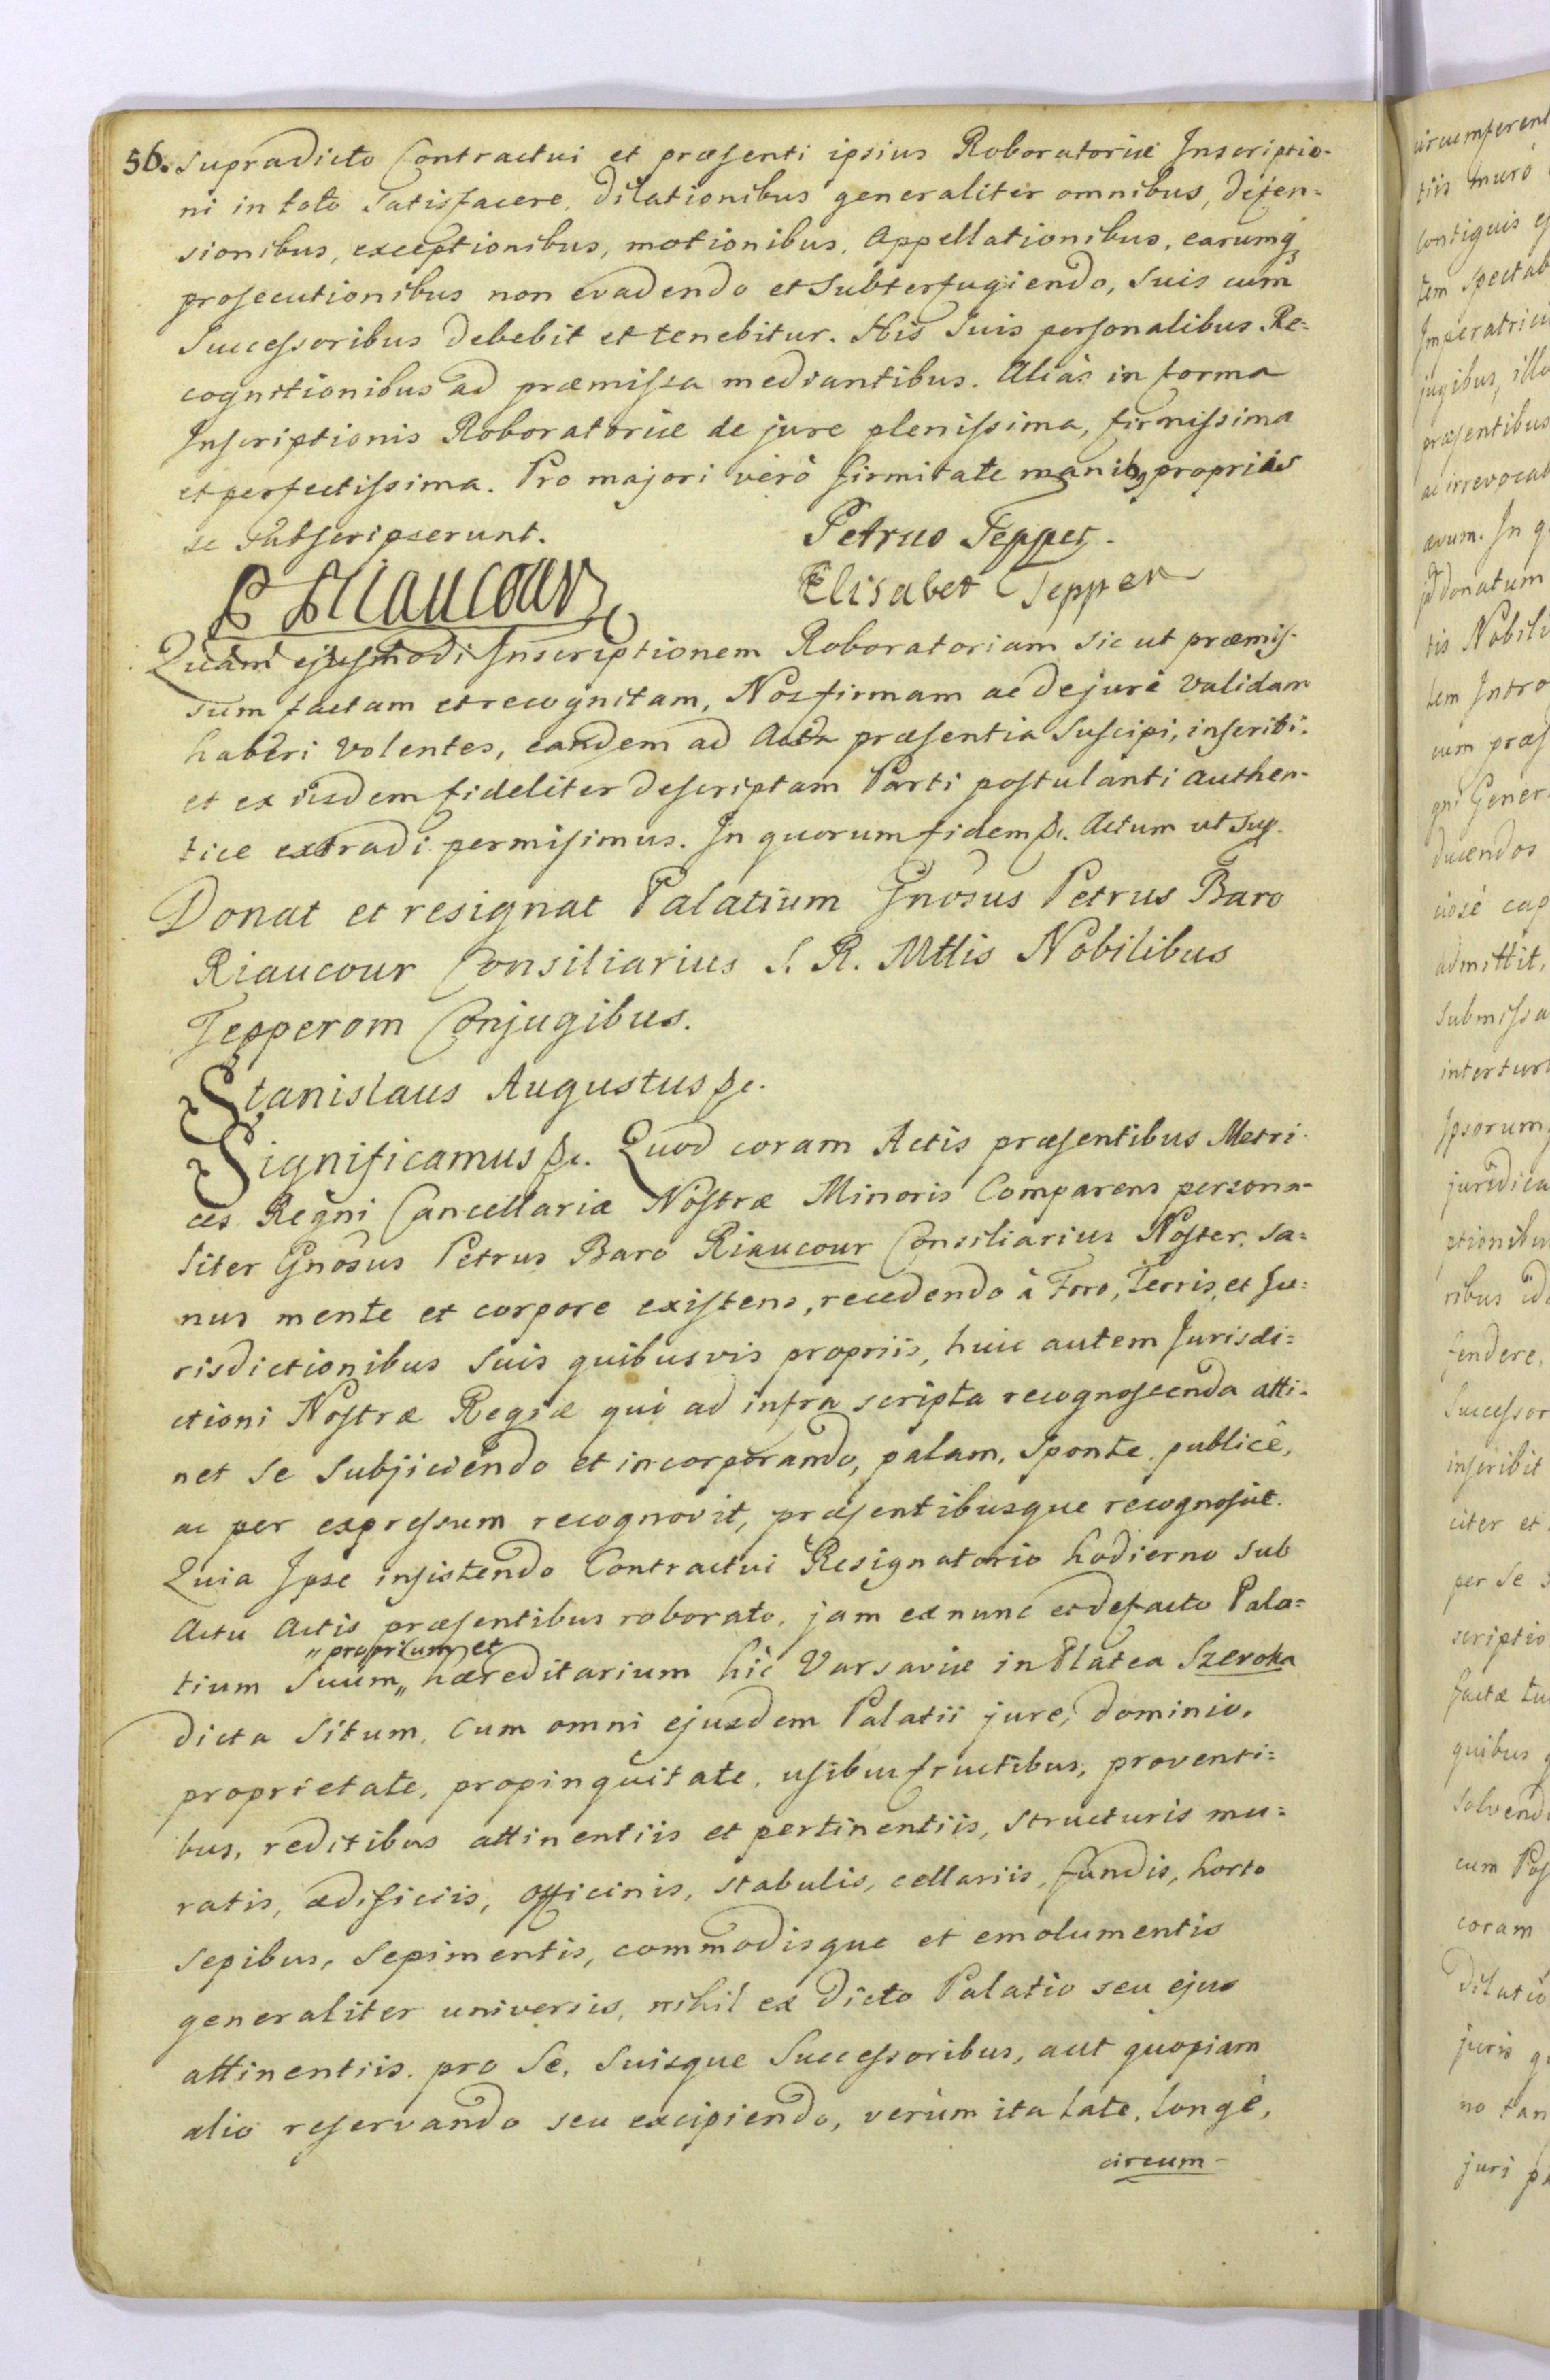 56. Supradicto Contractui et præsenti ipsius Roboratoriæ Inscriptio-
ni in toto Satisfacere, Dilationibus generaliter omnibus, defen=
sionibus, exceptionibus, motionibus, Appellationibus, earumq3
prosecutionibus non evadendo et Subterfugiendo, Suis cum
Successoribus Debebit et tenebitur. His Suis personalibus Re=
cognitionibus ad præmissa mediantibus. Aliàs in forma
Inscriptionis Roboratoriæ de jure plenissima, firmissima
et perfectissima. Pro majori verò firmitate manib9 propriis
se Subscripserunt.
Petrus Tepper.
P Riaucour
Elisabet Tepper
Quam ejusmodi Inscriptionem Roboratoriam sic ut præmis-
sum factam et recognitam, Nos firmam ac de jure validam
haberi volentes, eandem ad Acta præsentia Suscipi, inscribi,
et ex iisdem fideliter descriptam Parti postulanti authen-
tice extradi permisimus. In quorum fidem &c. Actum ut sup.
Donat et resignat Palatium Gnosus Petrus Baro
Riaucour Consiliarius S. R. Mttis Nobilibus
Tepperom Conjugibus.
Stanislaus Augustus &c.
Significamus &c. Quod coram Actis præsentibus Metri-
ces Regni Cancellariæ Nostræ Minoris Comparens persona-
liter Gnosus Petrus Baro Riaucour Consiliarius Noster, Sa=
nus mente et corpore existens, recedendo à Foro, Terris, et Ju=
risdictionibus Suis quibusvis propriis, huic autem Jurisdi=
ctioni Nostræ Regiæ quò ad infra scripta recognoscenda atti-
net se Subjiciendo et incorporando, palam, Sponte, publicè,
ac per expressum recognovit, præsentibusque recognoscit.
Quia Ipse insistendo Contractui Resignatorio hodierno sub
Actu Actis præsentibus roborato, jam ex nunc et de facto Pala=
"proprium et
tium Suum,, hæreditarium hic Varsaviæ in Platea Szeroka
dicta Situm, Cum omni ejusdem Palatii jure, dominio,
proprietate, propinquitate, usibusfructibus, proventi=
bus, reditibus attinentiis et pertinentiis, Structuris mu=
ratis, ædificiis, Officinis, Stabulis, cellariis, fundis, horto
sepibus, Sepimentis, commodisque et emolumentis
generaliter universis, nihil ex dicto Palatio seu ejus
attinentiis, pro Se, Suisque Successoribus, aut quopiam
alio reservando seu excipiendo, verùm ita late, longè,
circum-
circumferent
tiis muro
Contiguis
tem Spectab
Imperatrici
jugibus, illu
præsentibus
ac irrevocab
ævum. In q
donatum
tis Nobili
tem Intro
cum præs
gni Gener
ducendos
admittit,
Submissa
intertur
Ipsorum
juridica
ptionibu
ribus
fendere,
Successor
inscribit
citer et
per Se
scriptio
factæ tu
quibus
Solvend
cum Pos
coram
Dilatio
juris q
no tan
juri